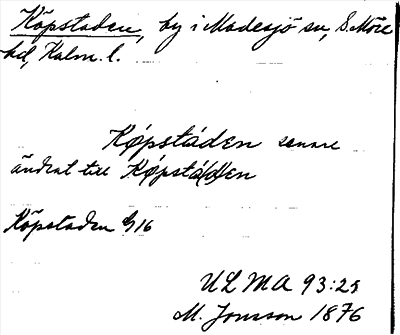 Köpstaden, by i Madesjö sn, S. Möre
hd, Kalm. l.
Køpstáden senare
ändrat till Køpstá(d)en
Köpstaden G 16
ULMA 93:25
M. Jonsson 1876